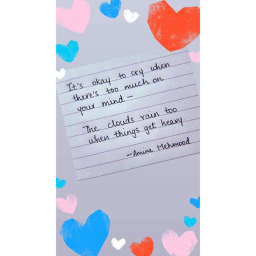 It's okay to cry when
there's too much on
your mind —
The clouds rain too
when things get heavy
—Amina Mehmood